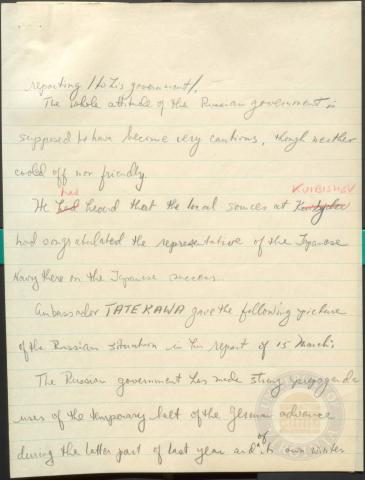 reporting / to his government/.
The whole attitude of the Russian government is
supposed to have become very cautious, though neither
cooled off nor friendly.
has KUIBISHEV
He had heard that the local sources at
had congratulated the representative of the Japanese
Navy there on the Japanese success.
Ambassador TATEKAWA gave the following picture
of the Russian situation in his report of 15 March:
The Russian government has made strong propaganda
uses of the temporary halt of the German advance
during the latter part of last year and of its own winter